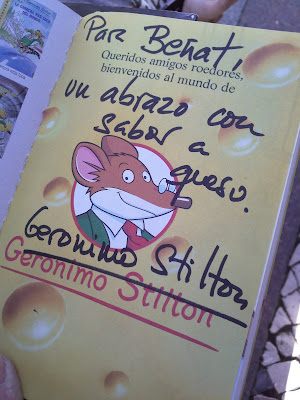 Para Beñat,
Queridos amigos roedores,
bienvenidos al mundo de
un abrazo con
sabor a
queso.
Geronimo Stilton
Geronimo Stilton